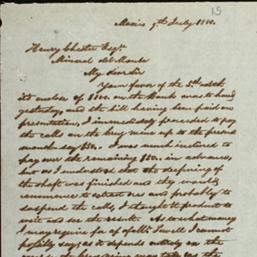 15
Mexico 9th July 1880.
Henry Chester Esqr.
Mineral del Monte
My dear Sir
Your favor of the 5th
its enclose of $100. on the Bank came to hand
yesterday, and the bill having been paid on
presentation, I immediately proceeded to pay
the calls on the mine up to the present
month say $50. I was much inclined to
pay over the remaining $50. in advance,
but as I understood that the deepening of
the shaft was finished and they would
commence to extract ores and probably to
suspend the calls, I thought it prudent to
wait and see the result. As to what money
I may require for I cannot
possibly say, as it depends entirely on the